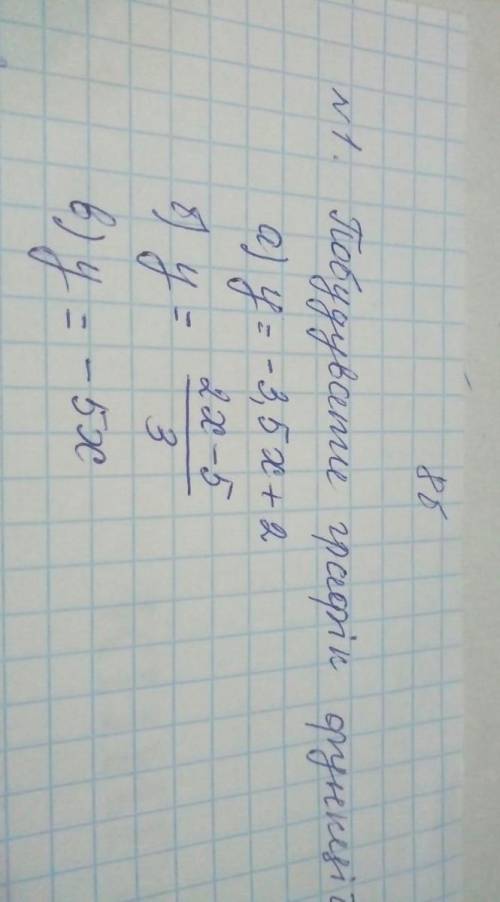 8б
№1. Побудувати графік функції
а) y = -3,5x + 2
б) y = (2x - 5)/3
в) y = -5x